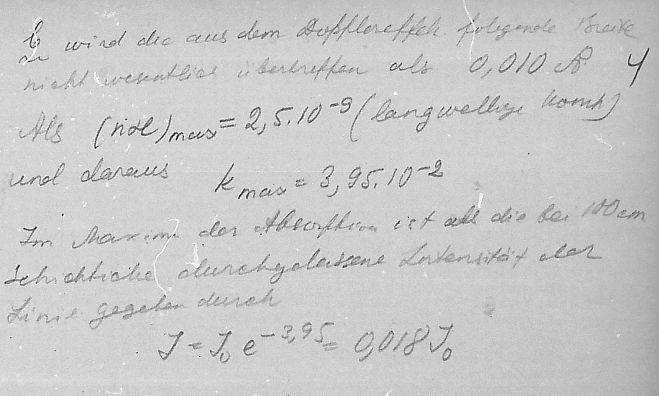 wird die aus dem Dopplereffekt folgende Breite
nicht wesentlich übertreffen als 0,010 Å 4
Als (nϰ)max = 2,5.10⁻⁹ (langwellige Komp)
und daraus k max = 3,95.10⁻²
Im Maximum der Absorption ist also die bei 100 cm
Schichtdicke durchgelassene Intensität der
Linie gegeben durch
J = J₀ e⁻³,⁹⁵ = 0,018 J₀